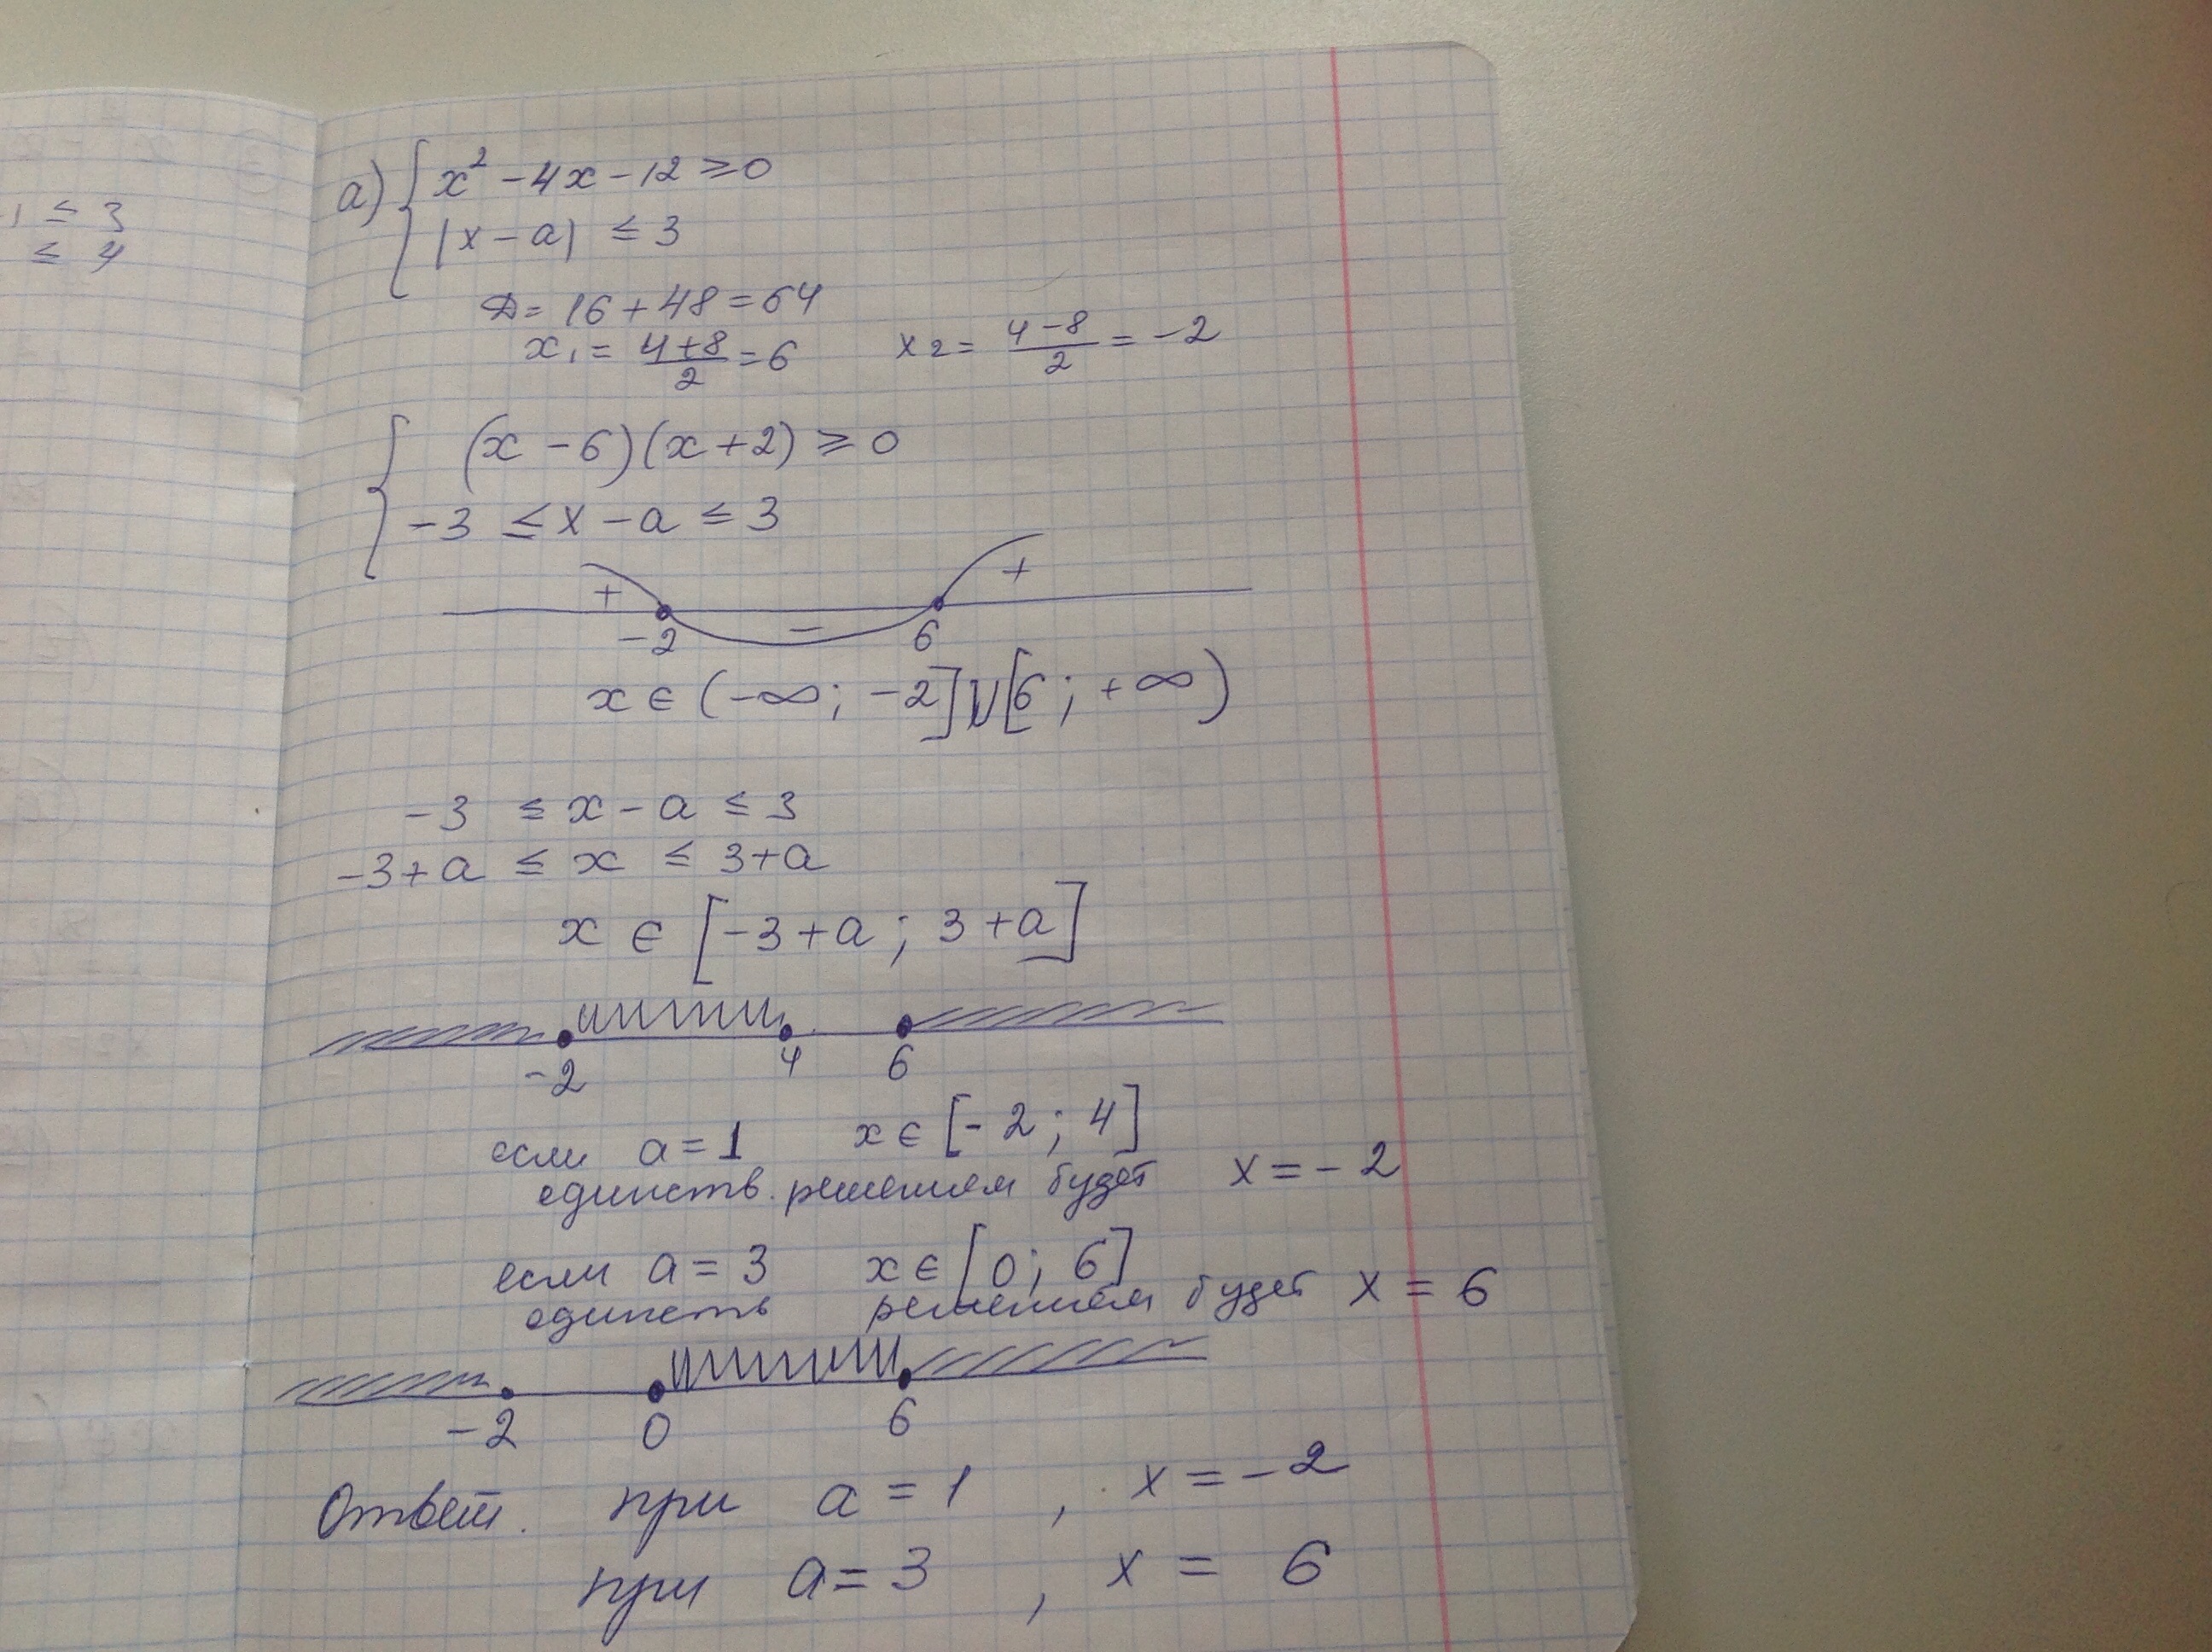 -1 ≤ 3
≤ 4
а) { x² - 4x - 12 ≥ 0
|x - a| ≤ 3
D = 16 + 48 = 64
x₁ = (4+8)/2 = 6 x₂ = (4-8)/2 = -2
{ (x - 6)(x + 2) ≥ 0
-3 ≤ x - a ≤ 3
+ - +
-2 6
x ∈ (-∞; -2] U [6; +∞)
-3 ≤ x - a ≤ 3
-3 + a ≤ x ≤ 3 + a
x ∈ [-3 + a; 3 + a]
-2 4 6
если a = 1 x ∈ [-2; 4]
единств. решением будет x = -2
если a = 3 x ∈ [0; 6]
единств решением будет x = 6
-2 0 6
Ответ. при a = 1, x = -2
при a = 3, x = 6